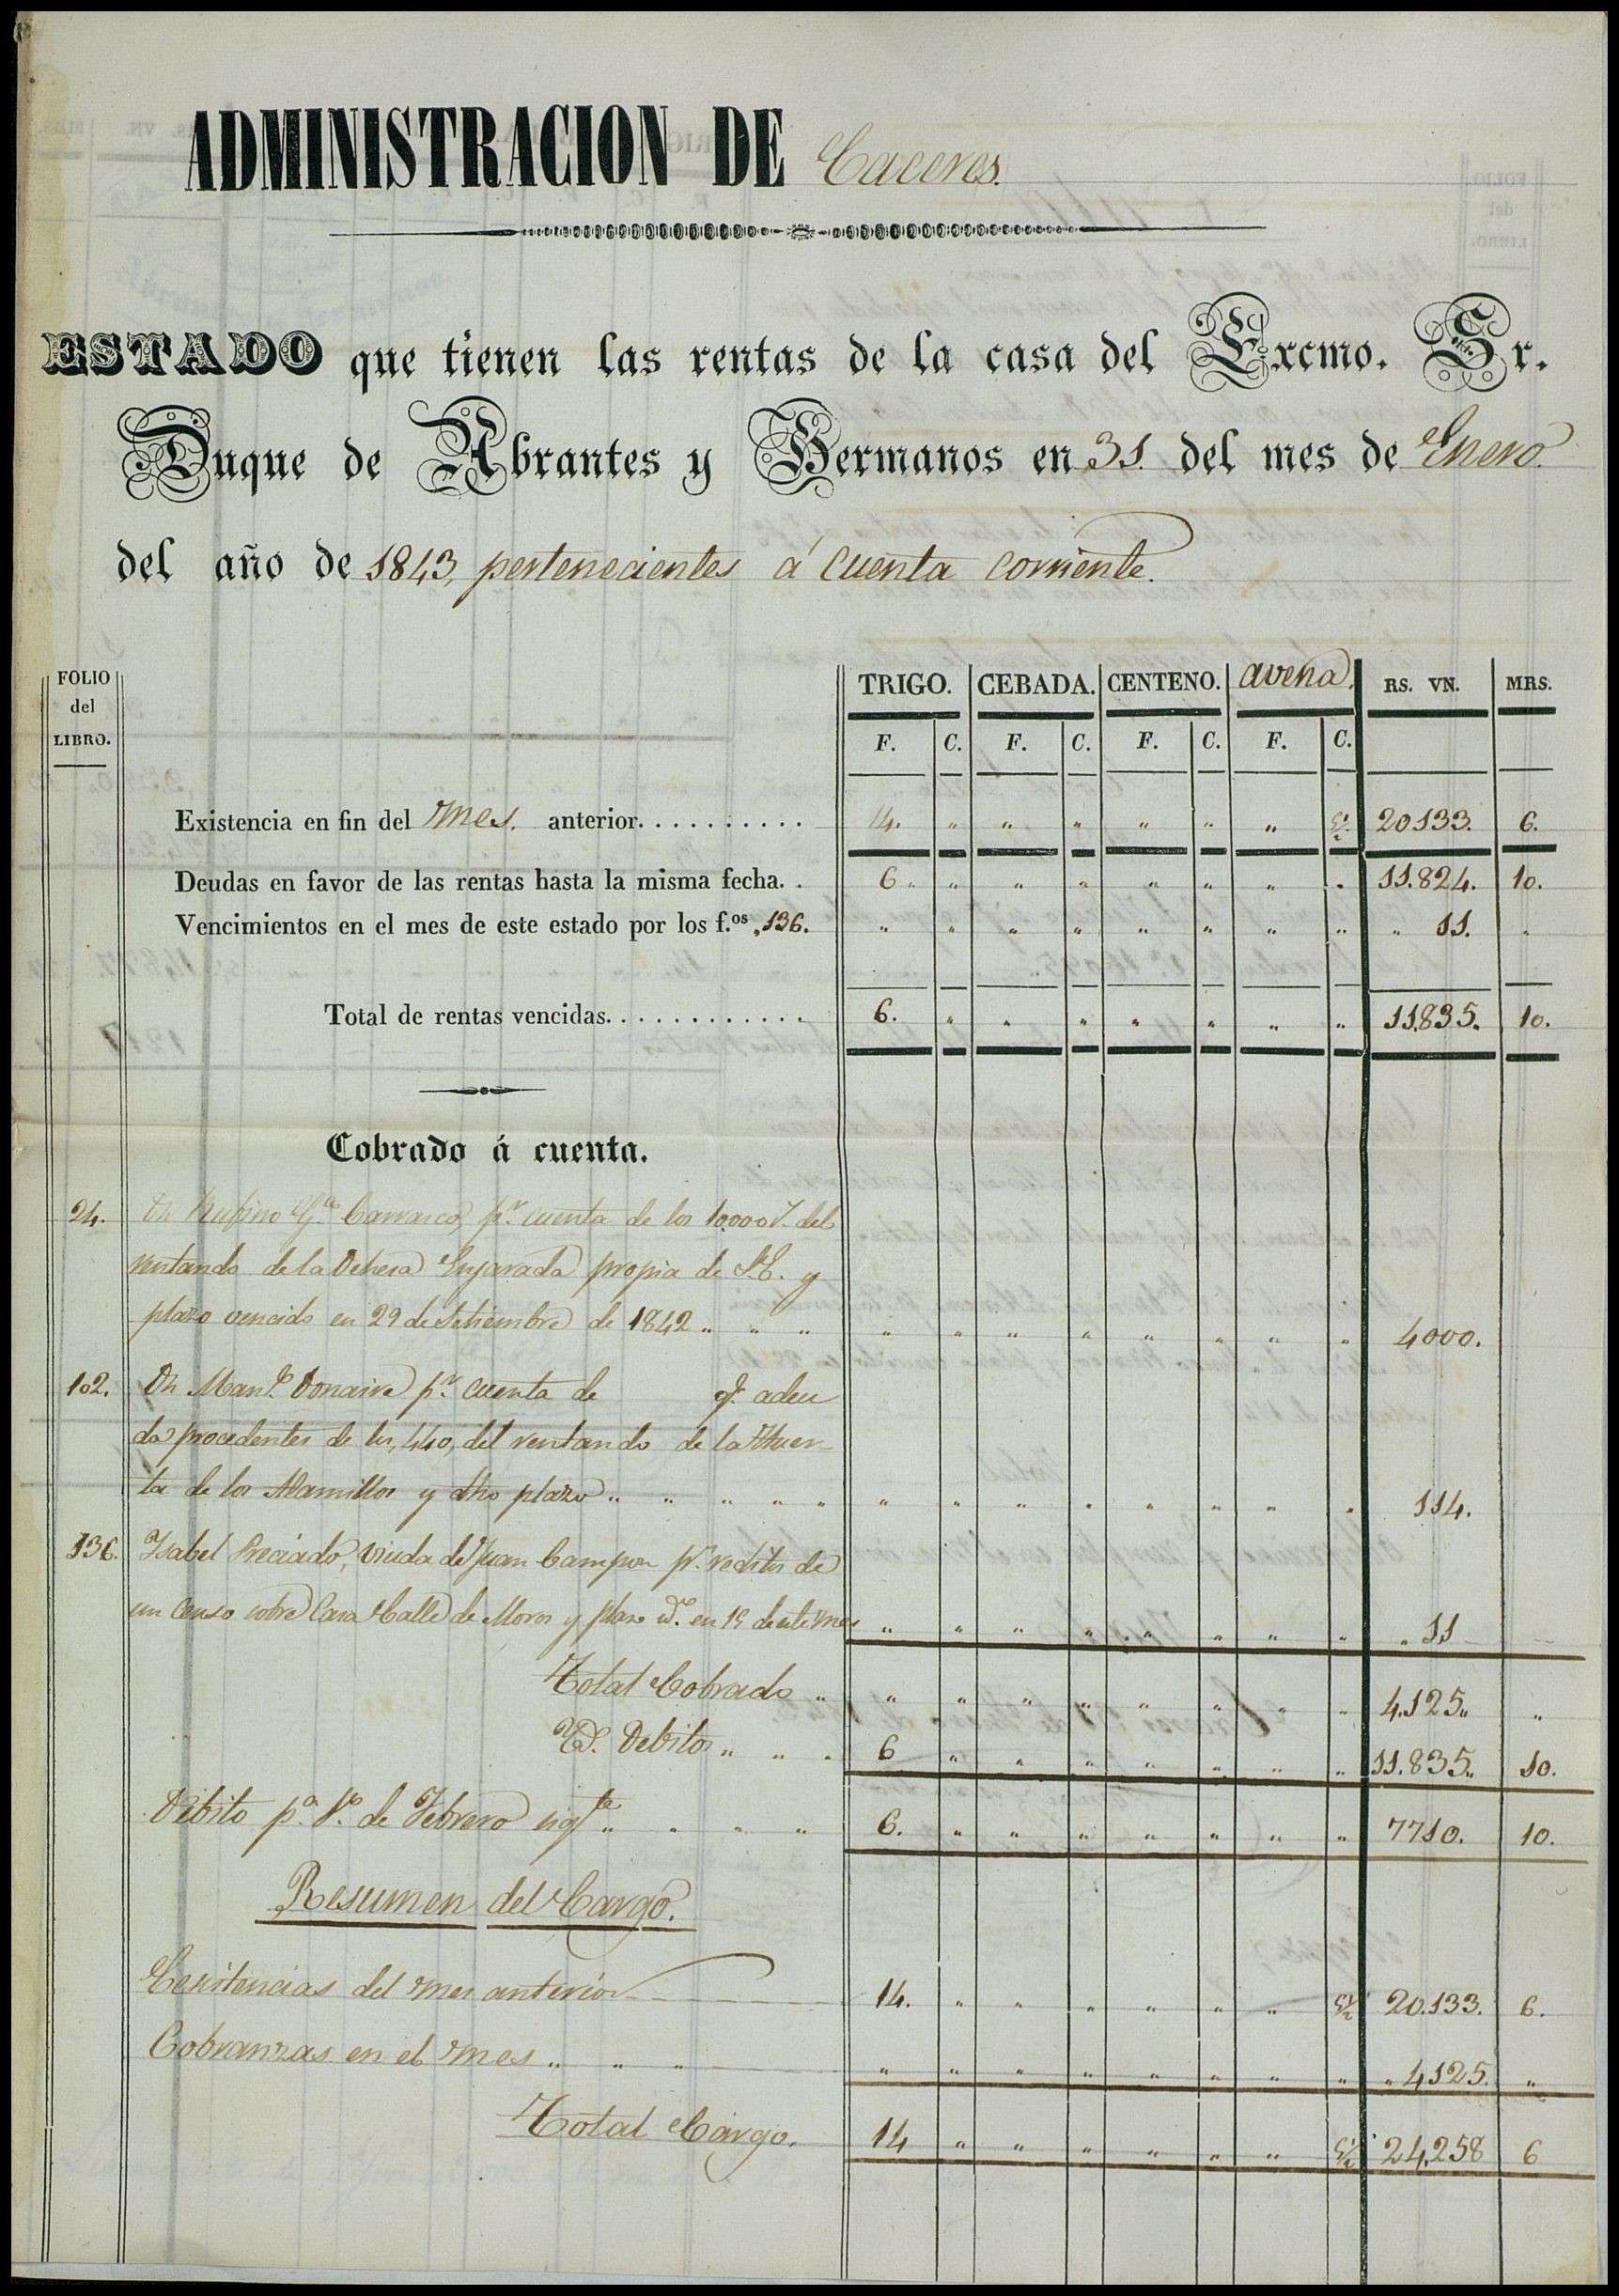 ADMINISTRACION DE Caceres.
ESTADO que tienen las rentas de la casa del Excmo. Sr.
Duque de Abrantes y Hermanos en 31. del mes de Enero.
del año de 1843, pertenecientes á cuenta corriente.
FOLIO del LIBRO. TRIGO. CEBADA. CENTENO. avena. RS. VN. MRS.
F. C. F. C. F. C. F. C.
Existencia en fin del mes. anterior. . . . . . . . . . 14. " " " " " " 20133. 6.
Deudas en favor de las rentas hasta la misma fecha. . 6 " " " " " " " " 11.824. 10.
Vencimientos en el mes de este estado por los f.os ,136. " " " " " " " " " 11. "
Total de rentas vencidas. . . . . . . . . . . . 6. " " " " " " " 11.835. 10.
Cobrado á cuenta.
24. Dn Rufino G.a Carrasco, p.r cuenta de los 10,000 r. del
rentando de la Dehesa Enjarada propia de S.E. y
plazo vencido en 29 de Setiembre de 1842 " " " " " " " " " " " 4000.
102. Dn Man.l Donaire p.r cuenta de q.e adeu
da procedentes de los, 440, del rentando de la Huer-
ta de los Alamillos y dho plazo " " " " " " " " " " " " " 114.
136. Isabel Preciado, viuda de Juan Campon p.r reditos de
un Censo sobre Casa Calle de Moros y plazo en 19 de este mes " " " " " " " " " 11
Total Cobrado " " " " " " " " " 4.125 " "
Yd. Debitos " " " 6 " " " " " " " 11.835 " 10.
Débito p.a 1.o de Febrero sig.te " " " " 6. " " " " " " " 7710. 10.
Resumen del Cargo.
Existencias del mes anterior 14. " " " " " " 20.133. 6.
Cobranzas en el mes " " " " " " " " " " " " 4125. "
Total Cargo. 14 " " " " " " 24,258 6